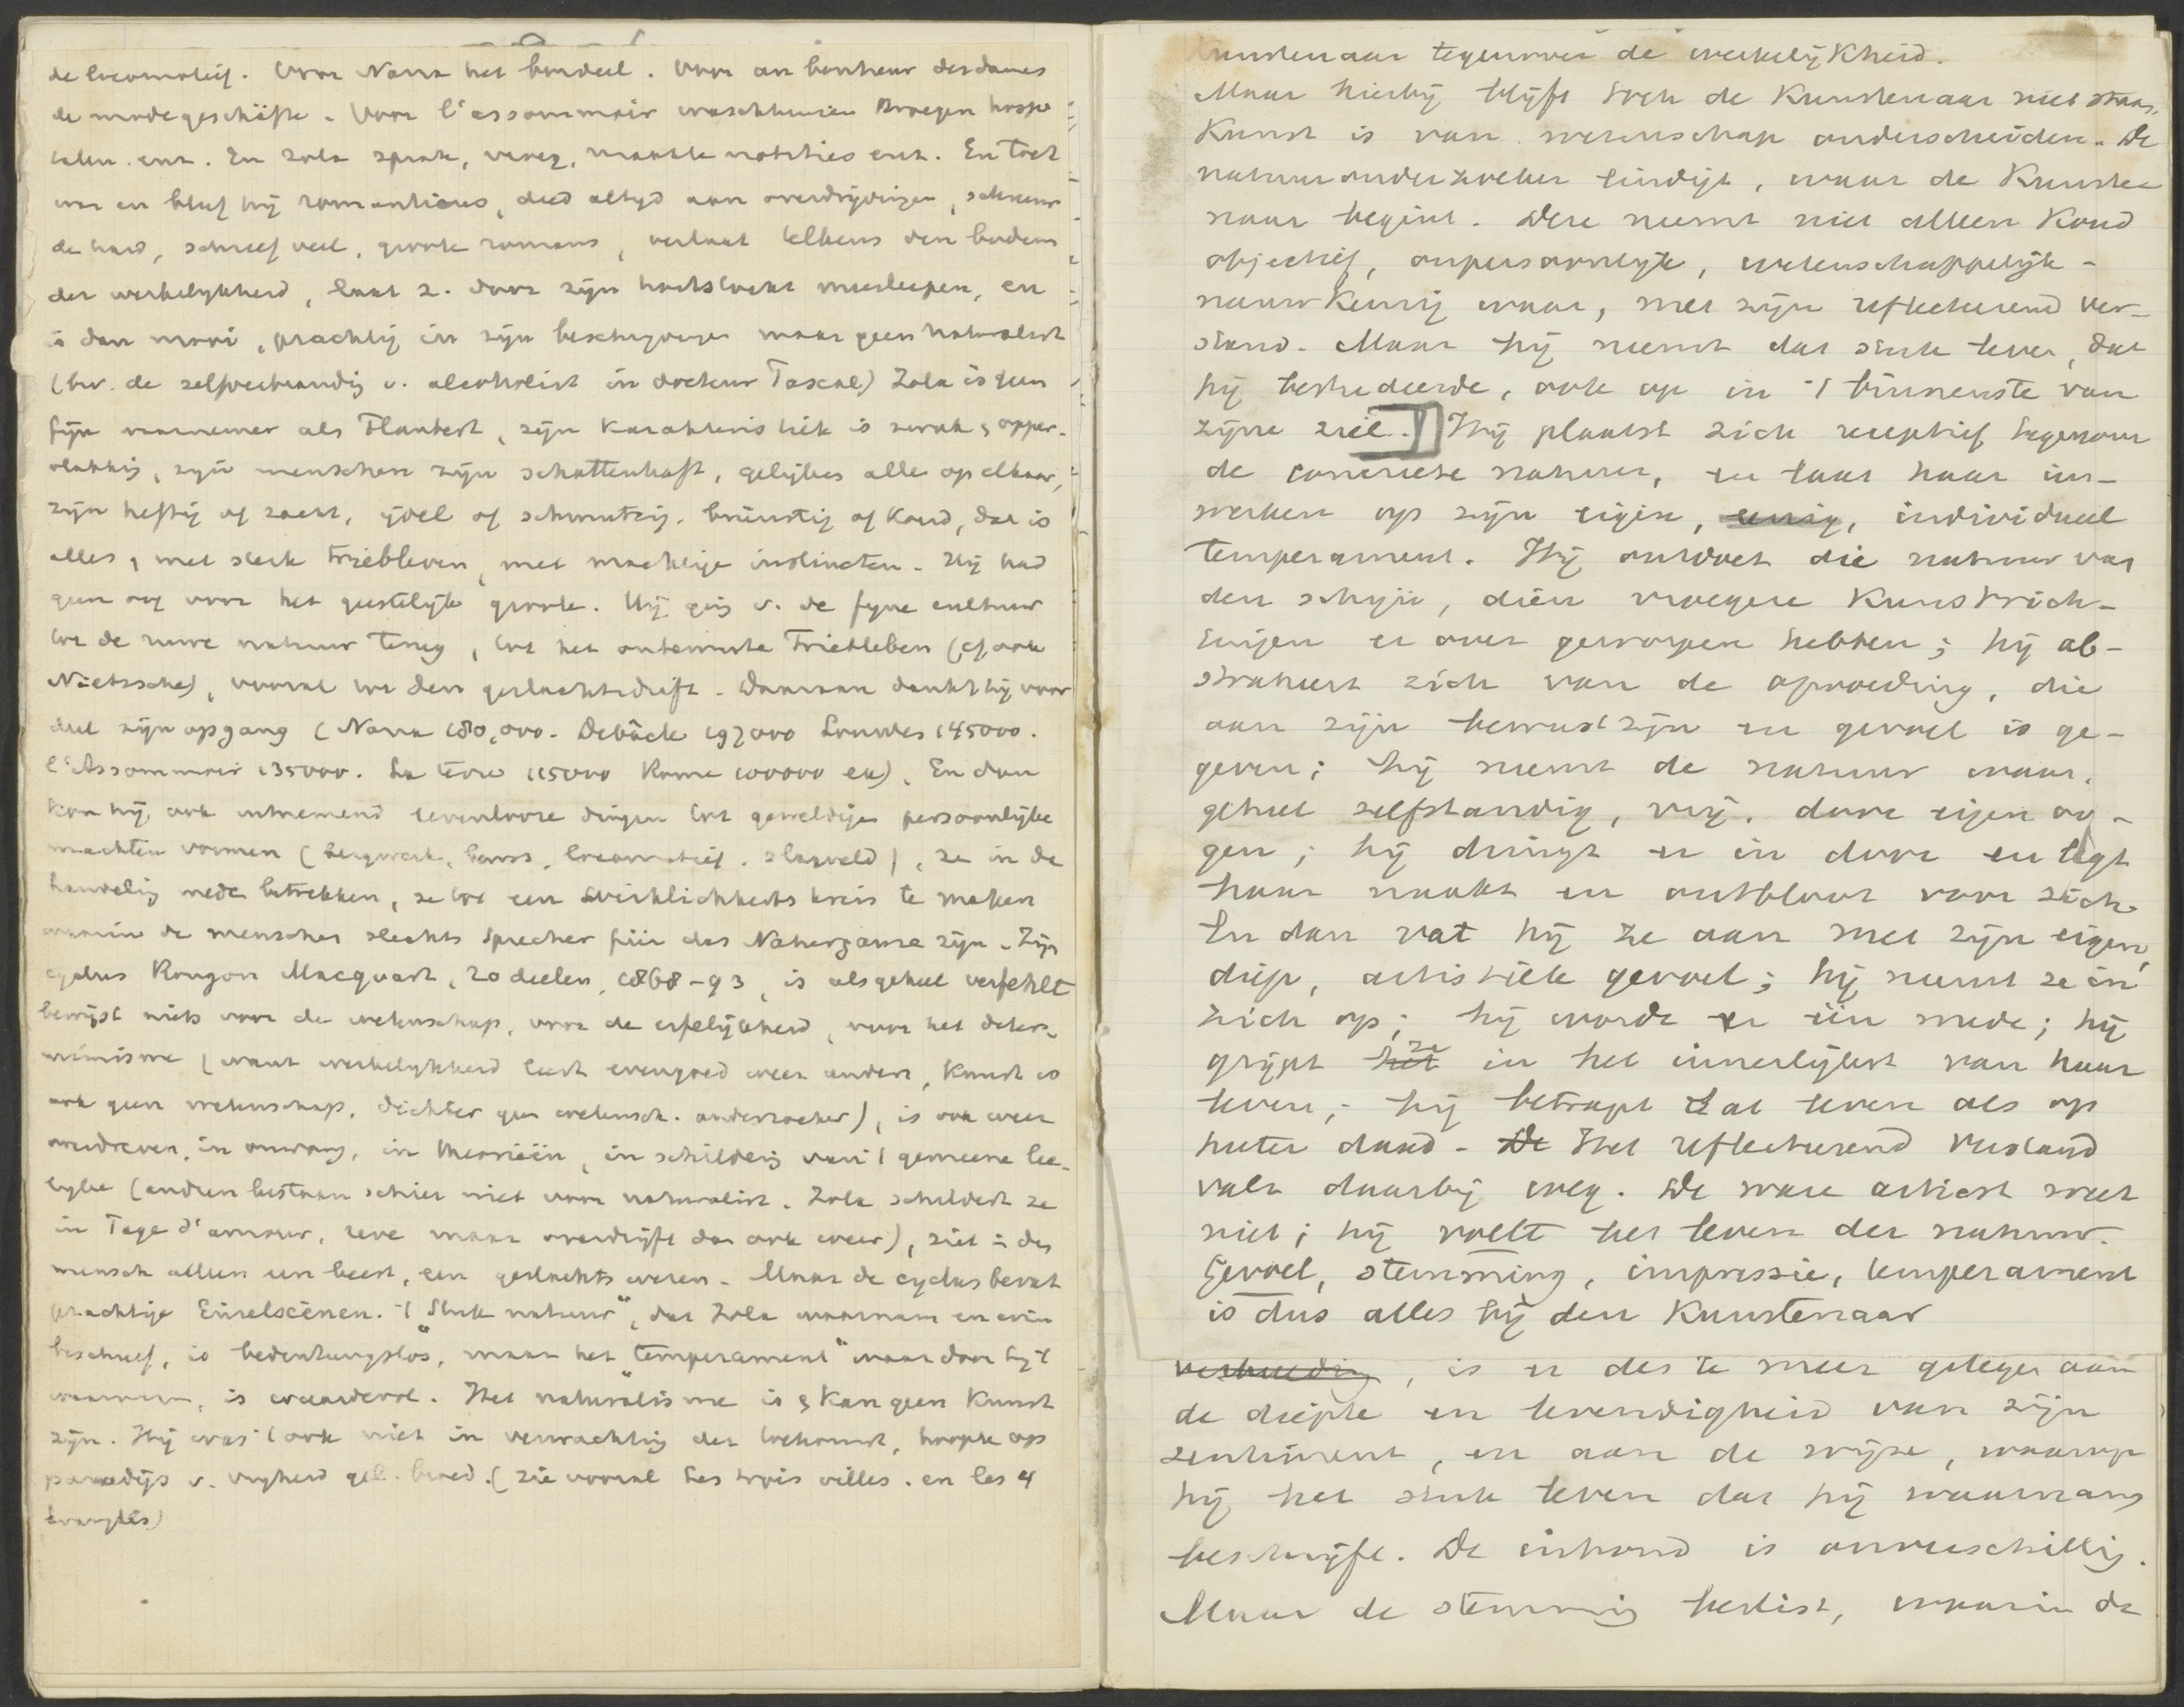 de locomotief. Voor Nana het bordeel. Voor au bonheur des dames
de modegeschäfte. Voor l'assommoir waschhuizen kroegen hospi
talen. enz. En Zola sprak, vroeg, maakte notities enz. En toch
was en bleef hij romanticus, deed altijd aan overdrijvingen, schreeuw
de hard, schreef veel, groote romans, verlaat telkens den bodem
der werkelijkheid, laat z. door zijn hartstocht meesleepen, en
is dan mooi, prachtig in zijn beschrijvingen maar geen naturalist
(bv. de zelfverbranding v. alcoholist in docteur Pascal) Zola is geen
fijn waarnemer als Flaubert, zijn karakteristiek is zwak & opper-
vlakkig, zijn menschen zijn schattenhaft, gelijken alle op elkaar,
zijn heftig of zacht, ijdel of schmutzig, brünstig of koud, dat is
alles, met sterk Triebleven, met machtige instincten. Hij had
geen oog voor het geestelijk groote. Hij ging v. de fijne cultuur
tot de ruwe natuur terug, tot het ontemde Triebleben (cf. ook
Nietzsche), vooral tot den geslachtsdrift. Daaraan dankt hij voor
deel zijn opgang (Nana 180,000. Debâcle 197000 Lourdes 145000.
l'Assommoir 135000. La terre 115000 Rome 100000 ex). En dan
kon hij ook uitnemend levenlooze dingen tot geweldige persoonlijke
machten vormen (bergwerk, beurs, locomotief, slagveld), ze in de
handeling mede betrekken, ze tot een Wirklichkeits kreis te maken
waarin de menschen slechts Sprecher für das Naturganze zijn. Zijn
cyclus Rougon Macquart, 20 deelen, 1868-93, is als geheel verfehlt
bewijst niets voor de wetenschap, voor de erfelijkheid, voor het deter-
minisme (want werkelijkheid leert evengoed weer anders, kunst is
ook geen wetenschap, dichter geen wetensch. onderzoeker), is ook weer
overdreven, in omvang, in theorieën, in schildering van 't gemeene lee-
lijke (anderen bestaan schier niet voor naturalist. Zola schildert ze
in Page d'amour, reve maar overdrijft dan ook weer), ziet in den
mensch alleen een beest, een geslachts wezen. Maar de cyclus bevat
prachtige Einzelscenen. 't "Stuk natuur", dat Zola waarnam en om
beschreef, is "bedeutungslos", maar het "temperament" waardoor hij 't
waarnam, is waardevol. Het naturalisme is & kan geen kunst
zijn. Hij was 't ook niet in verwachting der toekomst, hoopte op
paradijs v. vrijheid gel. broed. (zie vooral les trois villes. en les 4
evangiles)
kunstenaar tegenover de werkelijkheid.
Maar hierbij blijft toch de Kunstenaar niet staan,
Kunst is van wetenschap onderscheiden. De
natuuronderzoeker eindigt, waar de Kunste
naar begint. Deze neemt niet alleen koud
objectief, onpersoonlijk, wetenschappelijk-
nauwkeurig waar, met zijn reflecteerend ver-
stand. Maar hij neemt dat stuk leven, dat
hij bestudeerde, ook op in 't binnenste van
zijne ziel. Hij plaatst zich receptief tegenover
de concrete natuur, en laat haar in-
werken op zijn eigen, eenig, individueel
temperament. Hij ontdoet die natuur van
den schijn, dien vroegere Kunstrich-
tingen er over geworpen hebben; hij ab-
straheert zich van de opvoeding, die
aan zijn bewustzijn en gevoel is ge-
geven; hij neemt de natuur waar,
geheel zelfstandig, vrij, door eigen oo-
gen; hij dringt er in door en legt
haar naakt en ontbloot voor zich.
En dan vat hij ze aan met zijn eigen,
diep, artistiek gevoel; hij neemt ze in
zich op; hij wordt er één mede; hij
grijpt het ze in het innerlijkst van haar
leven; hij betrapt dat leven als op
heter daad. De Het reflecteerend verstand
valt daarbij weg. De ware artiest weet
niet; hij voelt het leven der natuur.
Gevoel, stemming, impressie, temperament
is dus alles bij den Kunstenaar
, is er des te meer gelegen aan
de diepte en levendigheid van zijn
sentiment, en aan de wijze, waarop
hij het stuk leven dat hij waarnam
beschrijft. De inhoud is onverschillig.
Maar de stemming beslist, waarin de